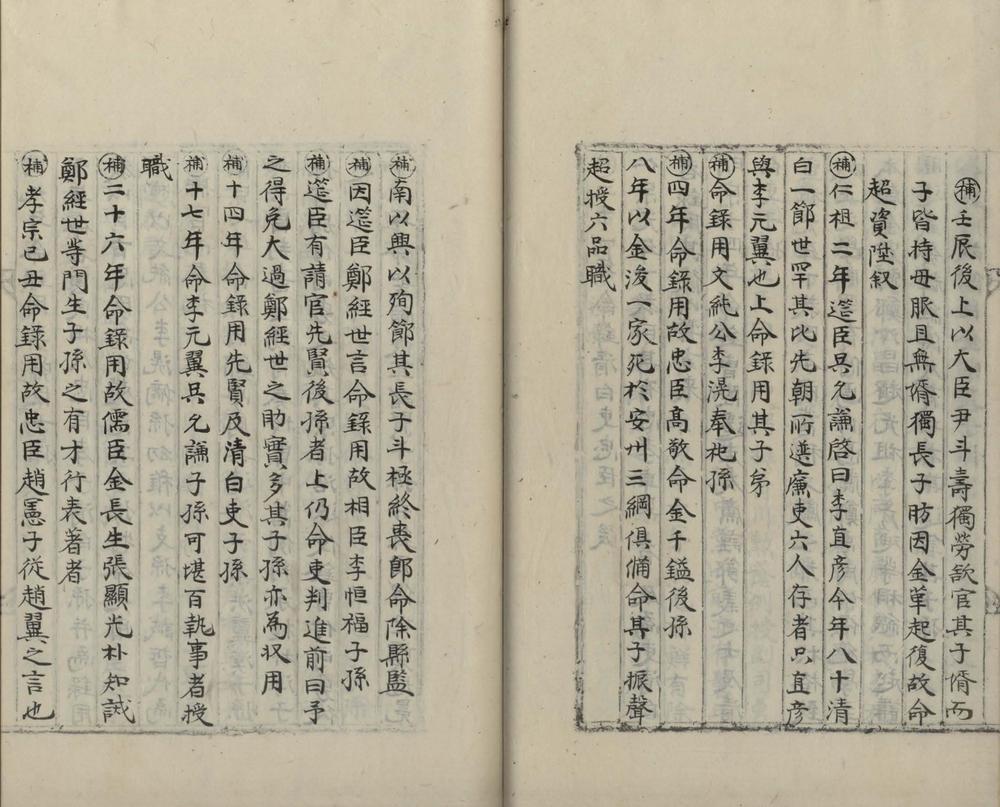 補壬辰後上以大臣尹斗壽獨勞欲官其子惰而
子皆持母服且無惰獨長子昉因金革起復故命
超資陞叙
補仁祖二年筵臣吳允謙啓曰李直彦今年八十清
白一節世罕其比先朝所選廉吏六人存者只直彦
與李元翼也上命錄用其子弟
補命錄用文純公李滉奉祀孫
補四年命錄用故忠臣高敬命金千鎰後孫
八年以金浚一家死於安州三綱俱備命其子振聲
超授六品職
補南以興以殉節其長子斗極終喪郎命除縣監
補因筵臣鄭經世言命錄用故相臣李恒福子孫
補筵臣有請官先賢後孫者上仍命吏判進前曰予
之得免大過鄭經世之助實多其子孫亦為収用
補十四年命錄用先賢及清白吏子孫
補十七年命李元翼吳允謙子孫可堪百執事者授
職
補二十六年命錄用故儒臣金長生張顯光朴知誡
鄭經世等門生子孫之有才行表著者
補孝宗己丑命錄用故忠臣趙憲子從趙翼之言也